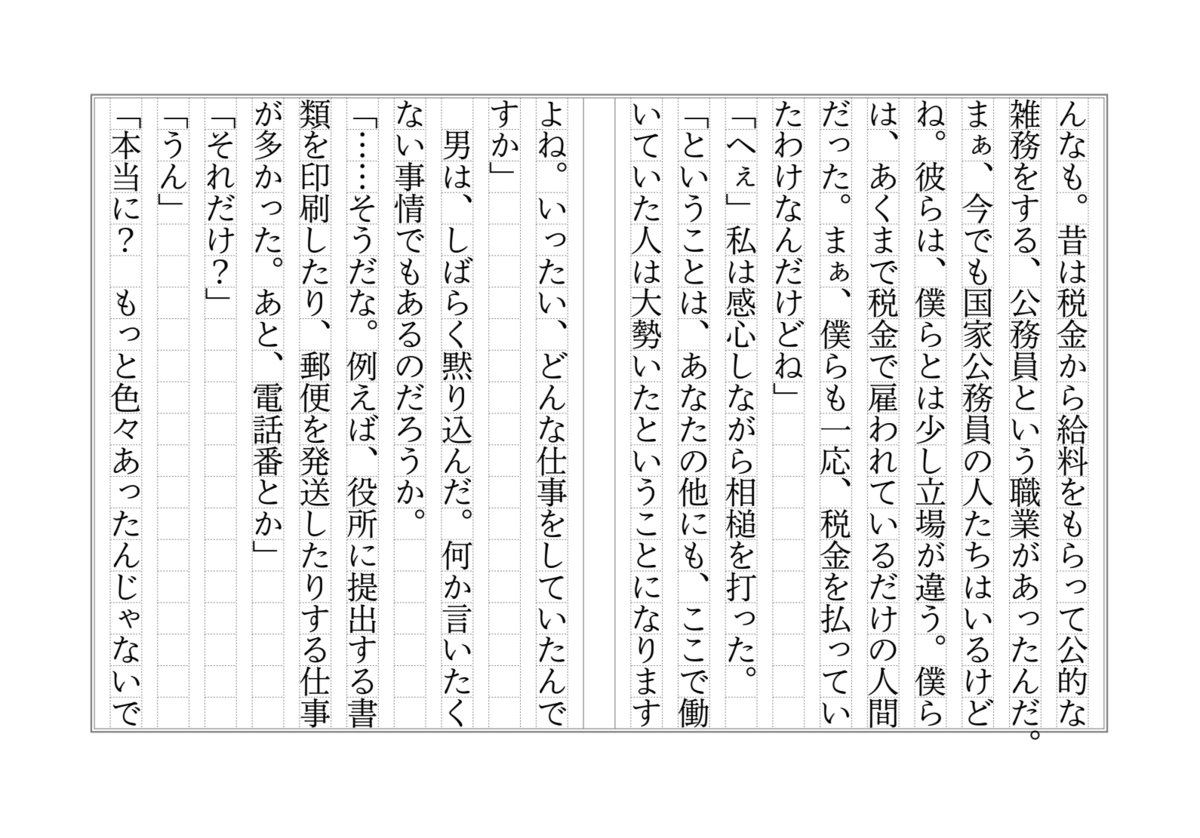 んなも。昔は税金から給料をもらって公的な
雑務をする、公務員という職業があったんだ。
まぁ、今でも国家公務員の人たちはいるけど
ね。彼らは、僕らとは少し立場が違う。僕ら
は、あくまで税金で雇われているだけの人間
だった。まぁ、僕らも一応、税金を払ってい
たわけなんだけどね」
「へぇ」私は感心しながら相槌を打った。
「ということは、あなたの他にも、ここで働
いていた人は大勢いたということになります
よね。いったい、どんな仕事をしていたんで
すか」
　男は、しばらく黙り込んだ。何か言いたく
ない事情でもあるのだろうか。
「……そうだな。例えば、役所に提出する書
類を印刷したり、郵便を発送したりする仕事
が多かった。あと、電話番とか」
「それだけ？」
「うん」
「本当に？　もっと色々あったんじゃないで